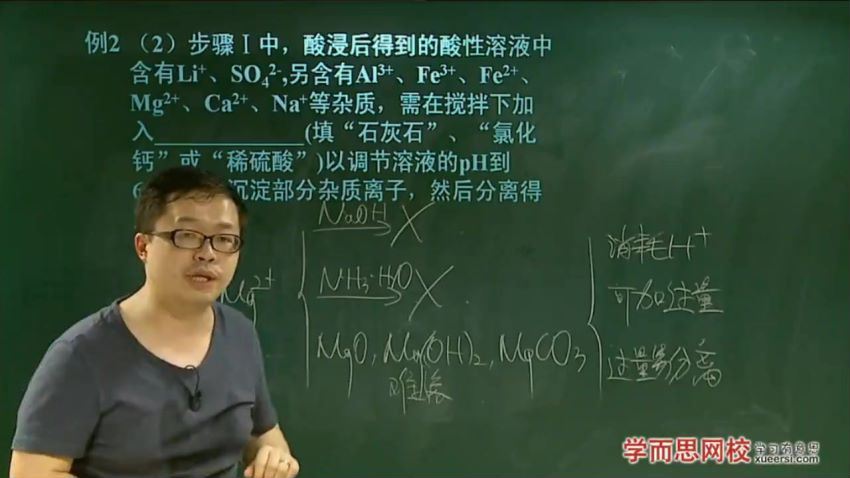 例2 （2）步骤Ⅰ中，酸浸后得到的酸性溶液中
含有Li⁺、SO₄²⁻,另含有Al³⁺、Fe³⁺、Fe²⁺、
Mg²⁺、Ca²⁺、Na⁺等杂质，需在搅拌下加
入______________(填“石灰石”、“氯化
钙”或“稀硫酸”)以调节溶液的pH到
6 沉淀部分杂质离子，然后分离得
Mg²⁺
NaOH X
NH₃·H₂O X
MgO, Mg(OH)₂, MgCO₃
难溶
消耗H⁺
可加过量
过量易分离
学而思网校
学习有意思
xueersi.com